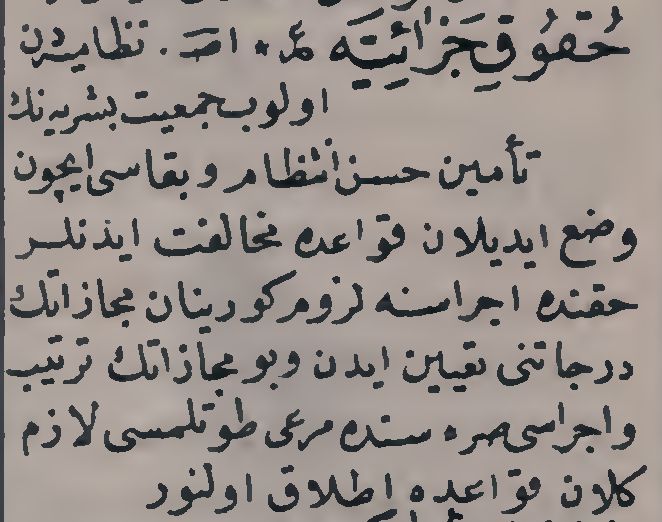 حُقوُقِ جَزائِيَّه ع. اصـ. نظاميه‌دن
اولوب جمعيت بشريه‌نك
تأمين حسن انتظام و بقاسى ايچون
وضع ايديلان قواعده مخالفت ايدنلر
حقنده اجراسنه لزوم كورينان مجازاتك
درجاتنى تعيين ايدن وبو مجازاتك ترتيب
واجراسى صره سنده مرعى طوتلمسى لازم
كلان قواعده اطلاق اولنور